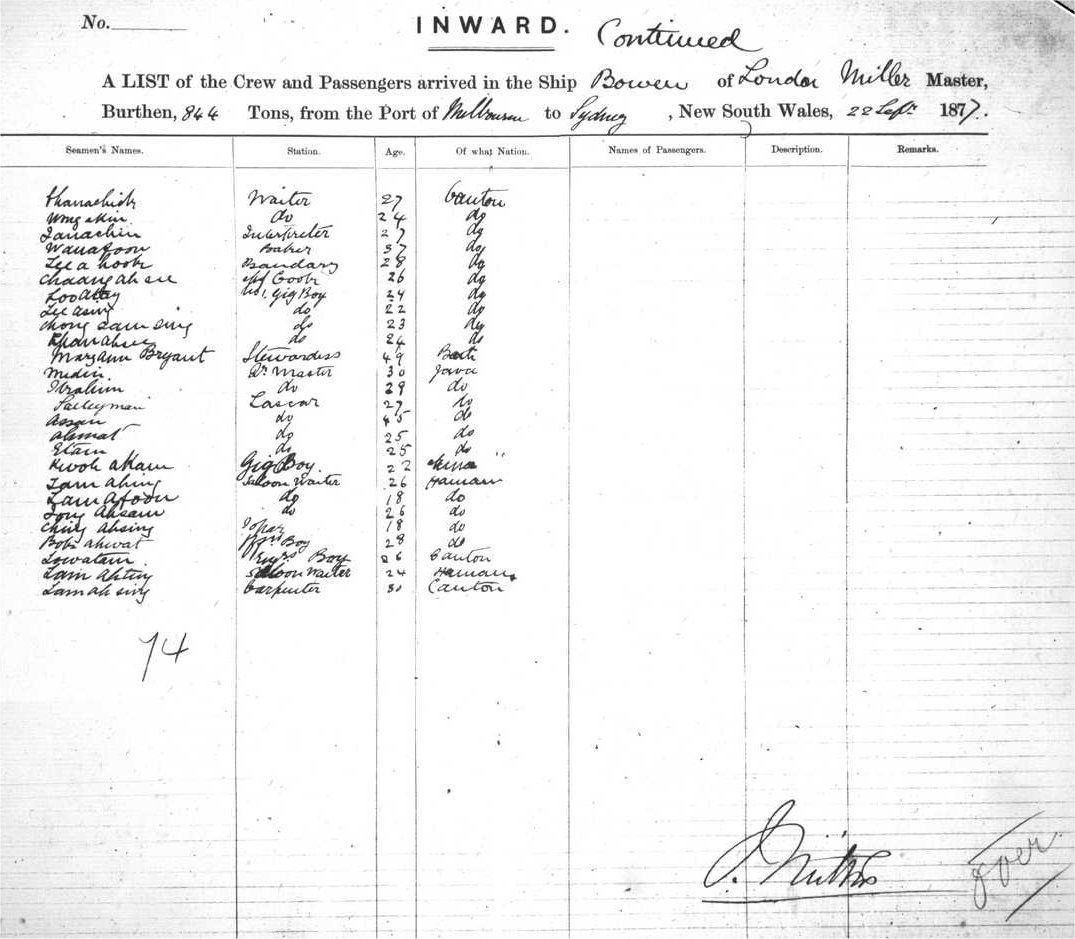 No.
INWARD. Continued
A LIST of the Crew and Passengers arrived in the Ship Bowen of London Miller Master,
Burthen, 844 Tons, from the Port of Melbourne to Sydney, New South Wales, 22 Sept. 1877.
Seamen's Names. Station. Age. Of what Nation. Names of Passengers. Description. Remarks.
Waiter 27 Canton
do 24 do
Interpreter 27 do
Baker 37 do
Lee a hook Bandary 28 do
Cook 26 do
Gig Boy 24 do
Lee asing do 22 do
Chong sam sing do 23 do
do 24 do
Maryann Bryant Stewardess 49
Medin Qr Master 30 Java
Ibrahim do 29 do
Lascar 27 do
Assan do 45 do
Ahmat do 25 do
Etam do 25 do
Kwok akam Gig Boy 22
Lam ahing Saloon Waiter 26 Hainan
Lam afoon do 18 do
Tong Ahsam do 26 do
Ching Ahsing Topaz 18 do
Boy 28 do
Lowatam Engrs Boy 26 Canton
Lam Ahting Saloon Waiter 24 Hainan
Lam ah sing Carpenter 30 Canton
74
over